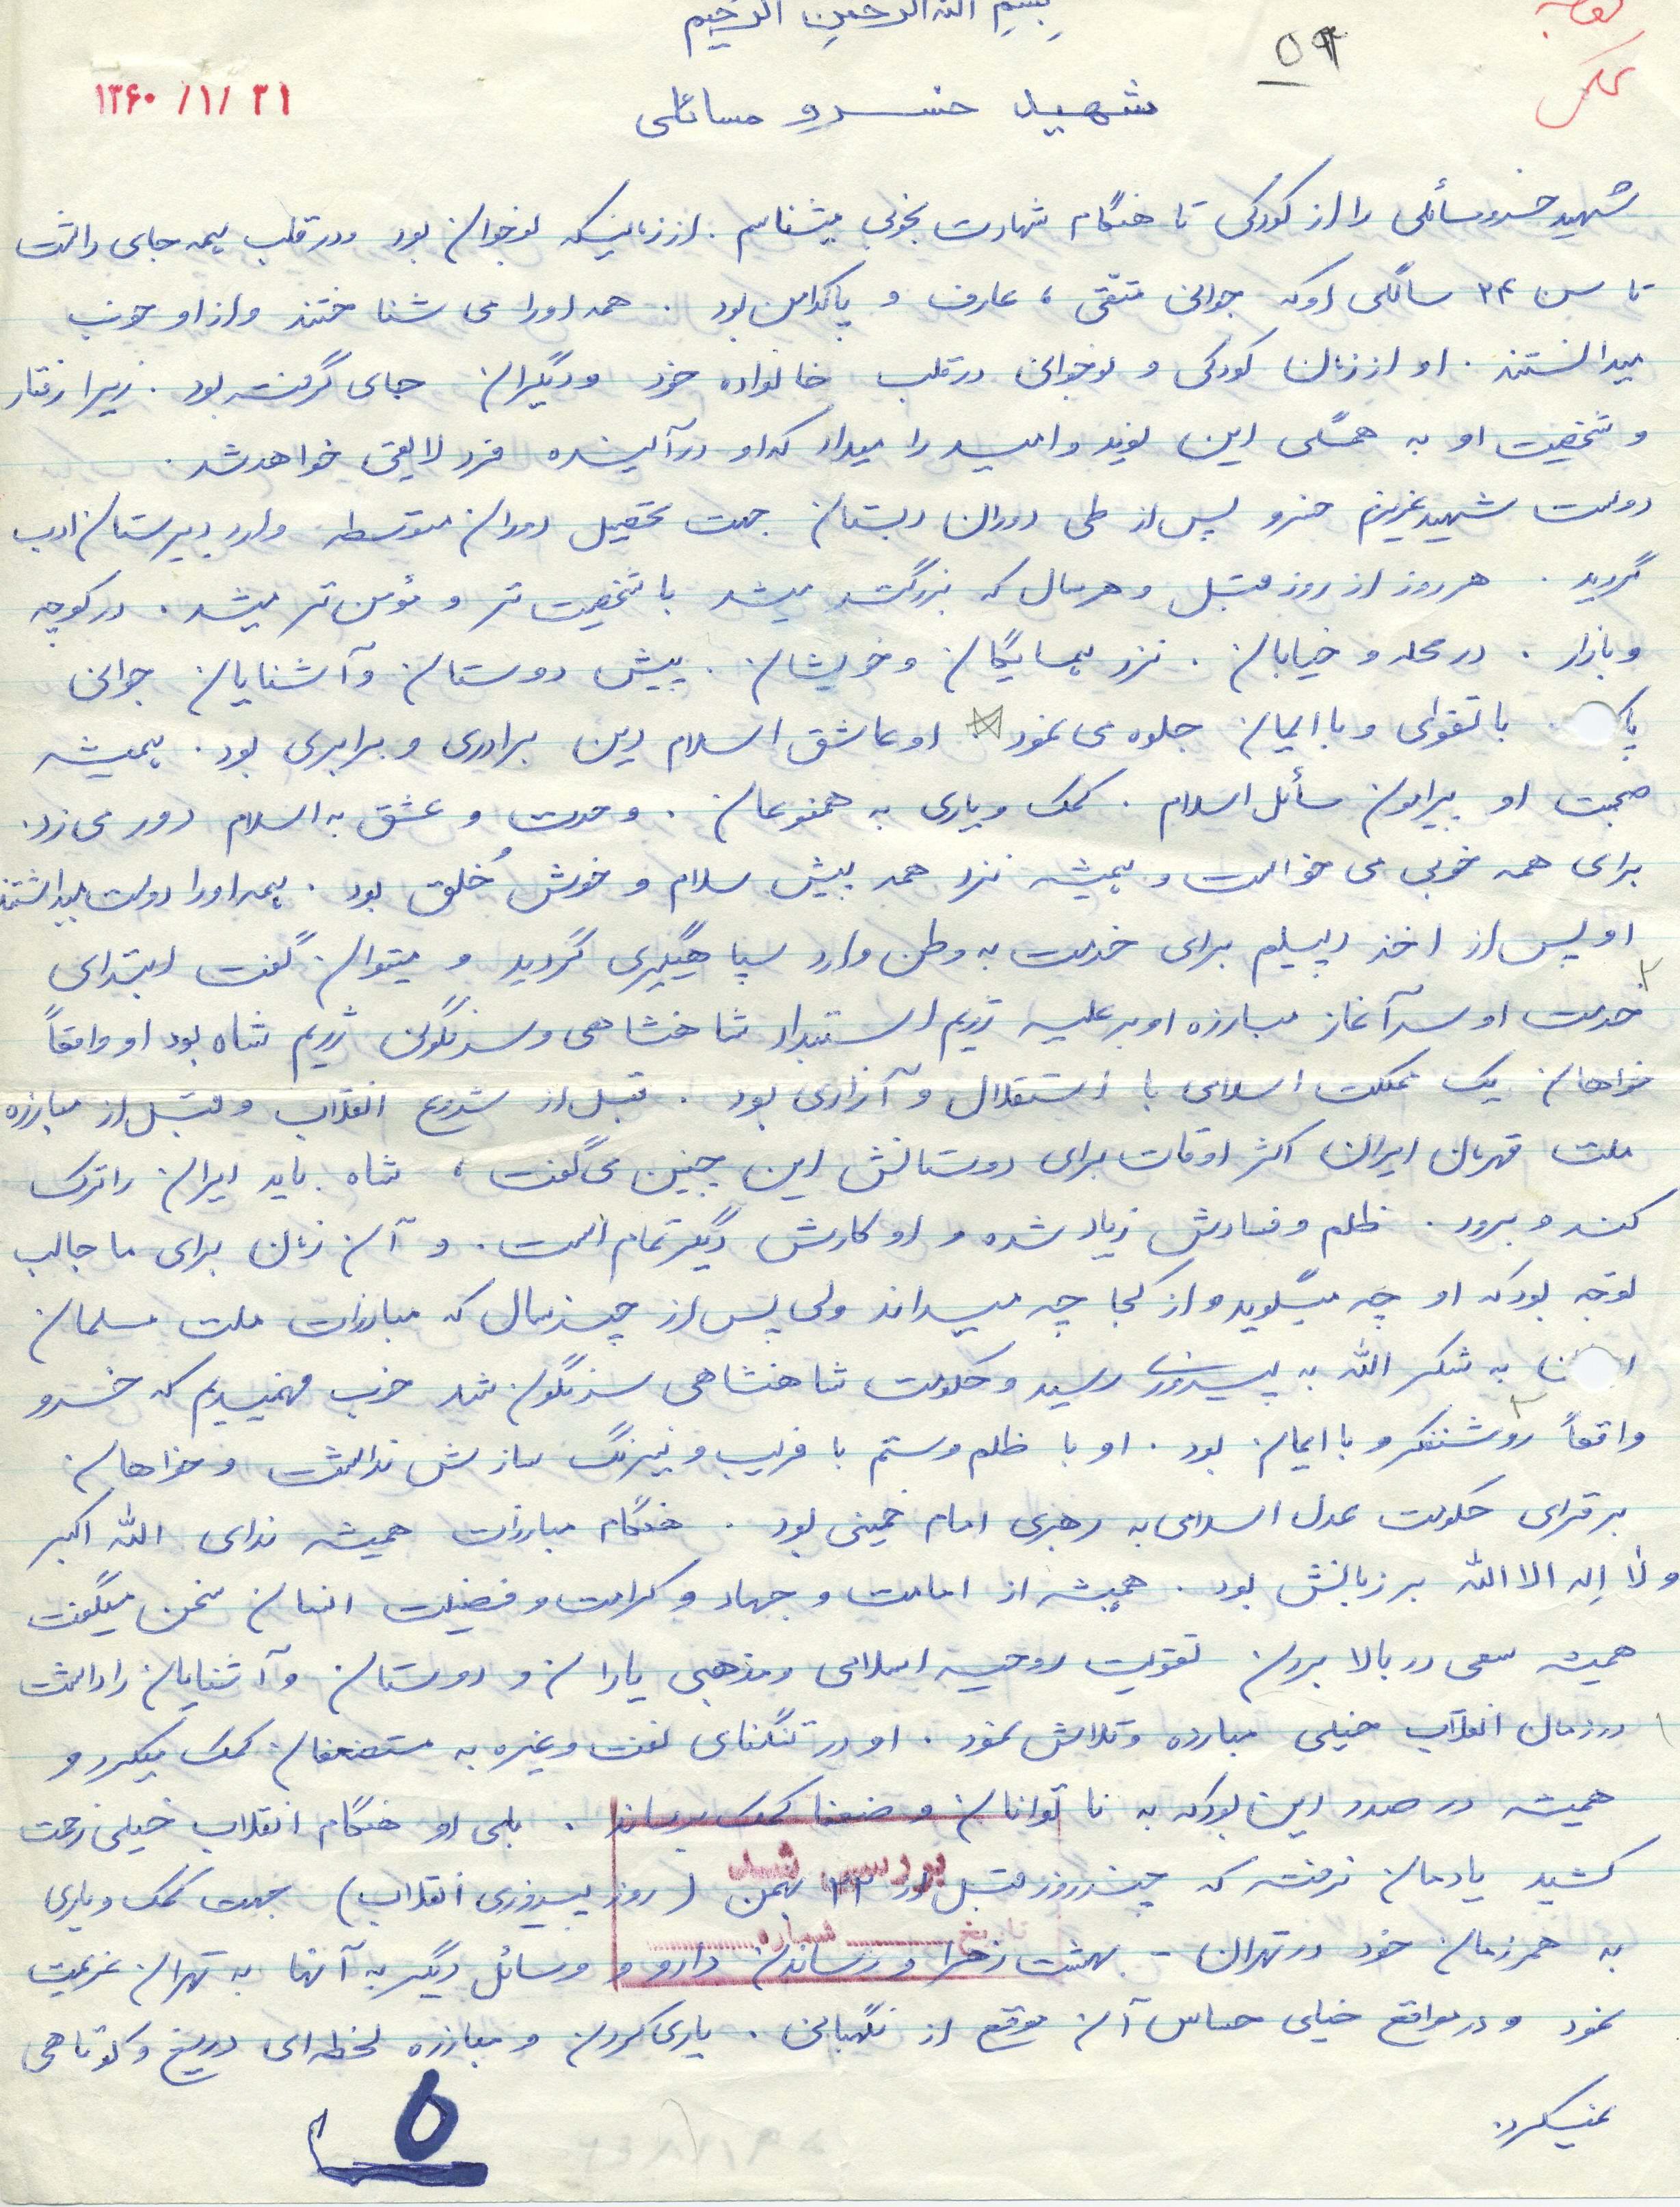 بسم الله الرحمن الرحیم
۵۹
شهید خسرو مسائلی
۱۳۶۰ /۱/ ۳۱
شهید خسرو مسائلی را از کودکی تا هنگام شهادت بخوبی میشناسم . از زمانیکه نوجوان بود و در قلب همه جای داشت
تا سن ۲۴ سالگی او که جوانی متقی ، عارف و پاکدامن بود . همه او را می شناختند و از او خوب
میدانستند . او از زمان کودکی و نوجوانی در قلب خانواده خود و دیگران جای گرفته بود . زیرا رفتار
و شخصیت او به همگی این نوید و امید را میداد که او در آینده فرد لایقی خواهد شد .
دوست شهید عزیزم خسرو پس از طی دوران دبستان جهت تحصیل دوران متوسطه وارد دبیرستان ادب
گردید . هر روز از روز قبل و هر سال که بزرگتر میشد با شخصیت تر و مؤمن تر میشد . در کوچه
و بازار . در محله و خیابان . نزد همسایگان و خویشان . پیش دوستان و آشنایان جوانی
پاک . با تقوای و با ایمان جلوه می نمود . او عاشق اسلام دین برادری و برابری بود . همیشه
صحبت او پیرامون مسائل اسلام . کمک و یاری به همنوعان . وحدت و عشق به اسلام دور می زد .
برای همه خوبی می خواست و همیشه نزد همه پیش سلام و خوش خُلق بود . همه او را دوست میداشتند
او پس از اخذ دیپلم برای خدمت به وطن وارد سپاهیگری گردید و میتوان گفت ابتدای
خدمت او سرآغاز مبارزه او بر علیه رژیم استبداد شاهنشاهی و سرنگونی رژیم شاه بود او واقعاً
خواهان یک مملکت اسلامی با استقلال و آزادی بود . قبل از شروع انقلاب و قبل از مبارزه
ملت قهرمان ایران اکثر اوقات برای دوستانش این چنین می گفت ، شاه باید ایران را ترک
کند و برود . ظلم و فسادش زیاد شده و او کارش دیگر تمام است . و آن زمان برای ما جالب
توجه بود که او چه میگوید و از کجا چه میداند ولی پس از چند سال که مبارزات ملت مسلمان
به شکر الله به پیروزی رسید و حکومت شاهنشاهی سرنگون شد خوب فهمیدیم که خسرو
واقعاً روشنفکر و با ایمان بود . او با ظلم و ستم با فریب و نیرنگ سازش نداشت و خواهان
برقرای حکومت عدل اسلامی به رهبری امام خمینی بود . هنگام مبارزات همیشه ندای الله اکبر
و لا اِله الا الله بر زبانش بود . همیشه از امامت و جهاد و کرامت و فضیلت انسان سخن میگفت
همیشه سعی در بالا بردن تقویت روحیه اسلامی و مذهبی یاران و دوستان و آشنایان را داشت
در زمان انقلاب خیلی مبارزه و تلاش نمود . او در تنگنای نفت و غیره به مستضعفان کمک میکرد و
همیشه در صدد این بود که به ناتوانان و ضعفا کمک برساند . بلی او هنگام انقلاب خیلی زحمت
کشید یادمان نرفته که چند روز قبل از ۲۲ بهمن ( روز پیروزی انقلاب ) جهت کمک و یاری
بررسی شد
تاریخ شماره
به همرزمان خود در تهران - بهشت زهرا و رساندن دارو و وسائل دیگر به آنها به تهران عزیمت
نمود و در مواقع خیلی حساس آن موقع از نگهبانی . یاری کردن و مبارزه لحظه ای دریغ و کوتاهی
نمیکرد .
۵